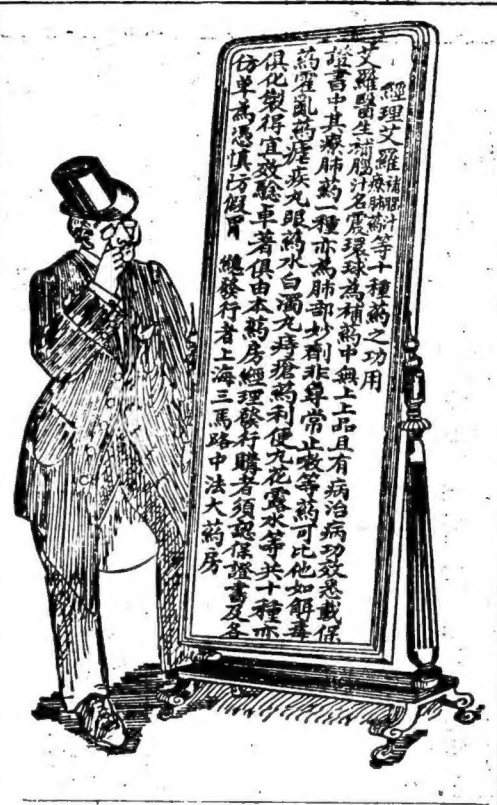 經理艾羅補腦汁療肺藥等十種藥之功用
艾羅醫生補腦汁名震環球為補藥中無上上品且有病治病功效悉載保
證書中其療肺藥一種亦為肺部妙劑非尋常止咳等藥可比他如解毒
藥霍亂藥瘧疾丸眼藥水白濁丸痔瘡藥利便丸花露水等共十種亦
俱化製得宜效驗卓著俱由本藥房經理發行購者須認保證書及各
仿單為憑慎防假冒 總發行者上海三馬路中法大藥房